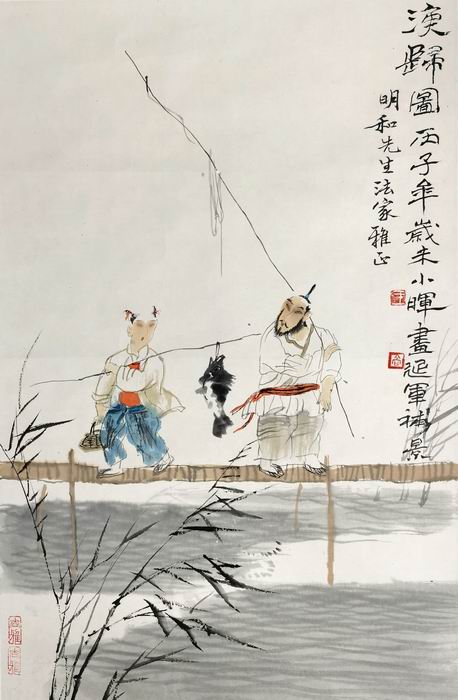 渔歸圖丙子年歲末小暉畫延軍補景
明和先生法家雅正